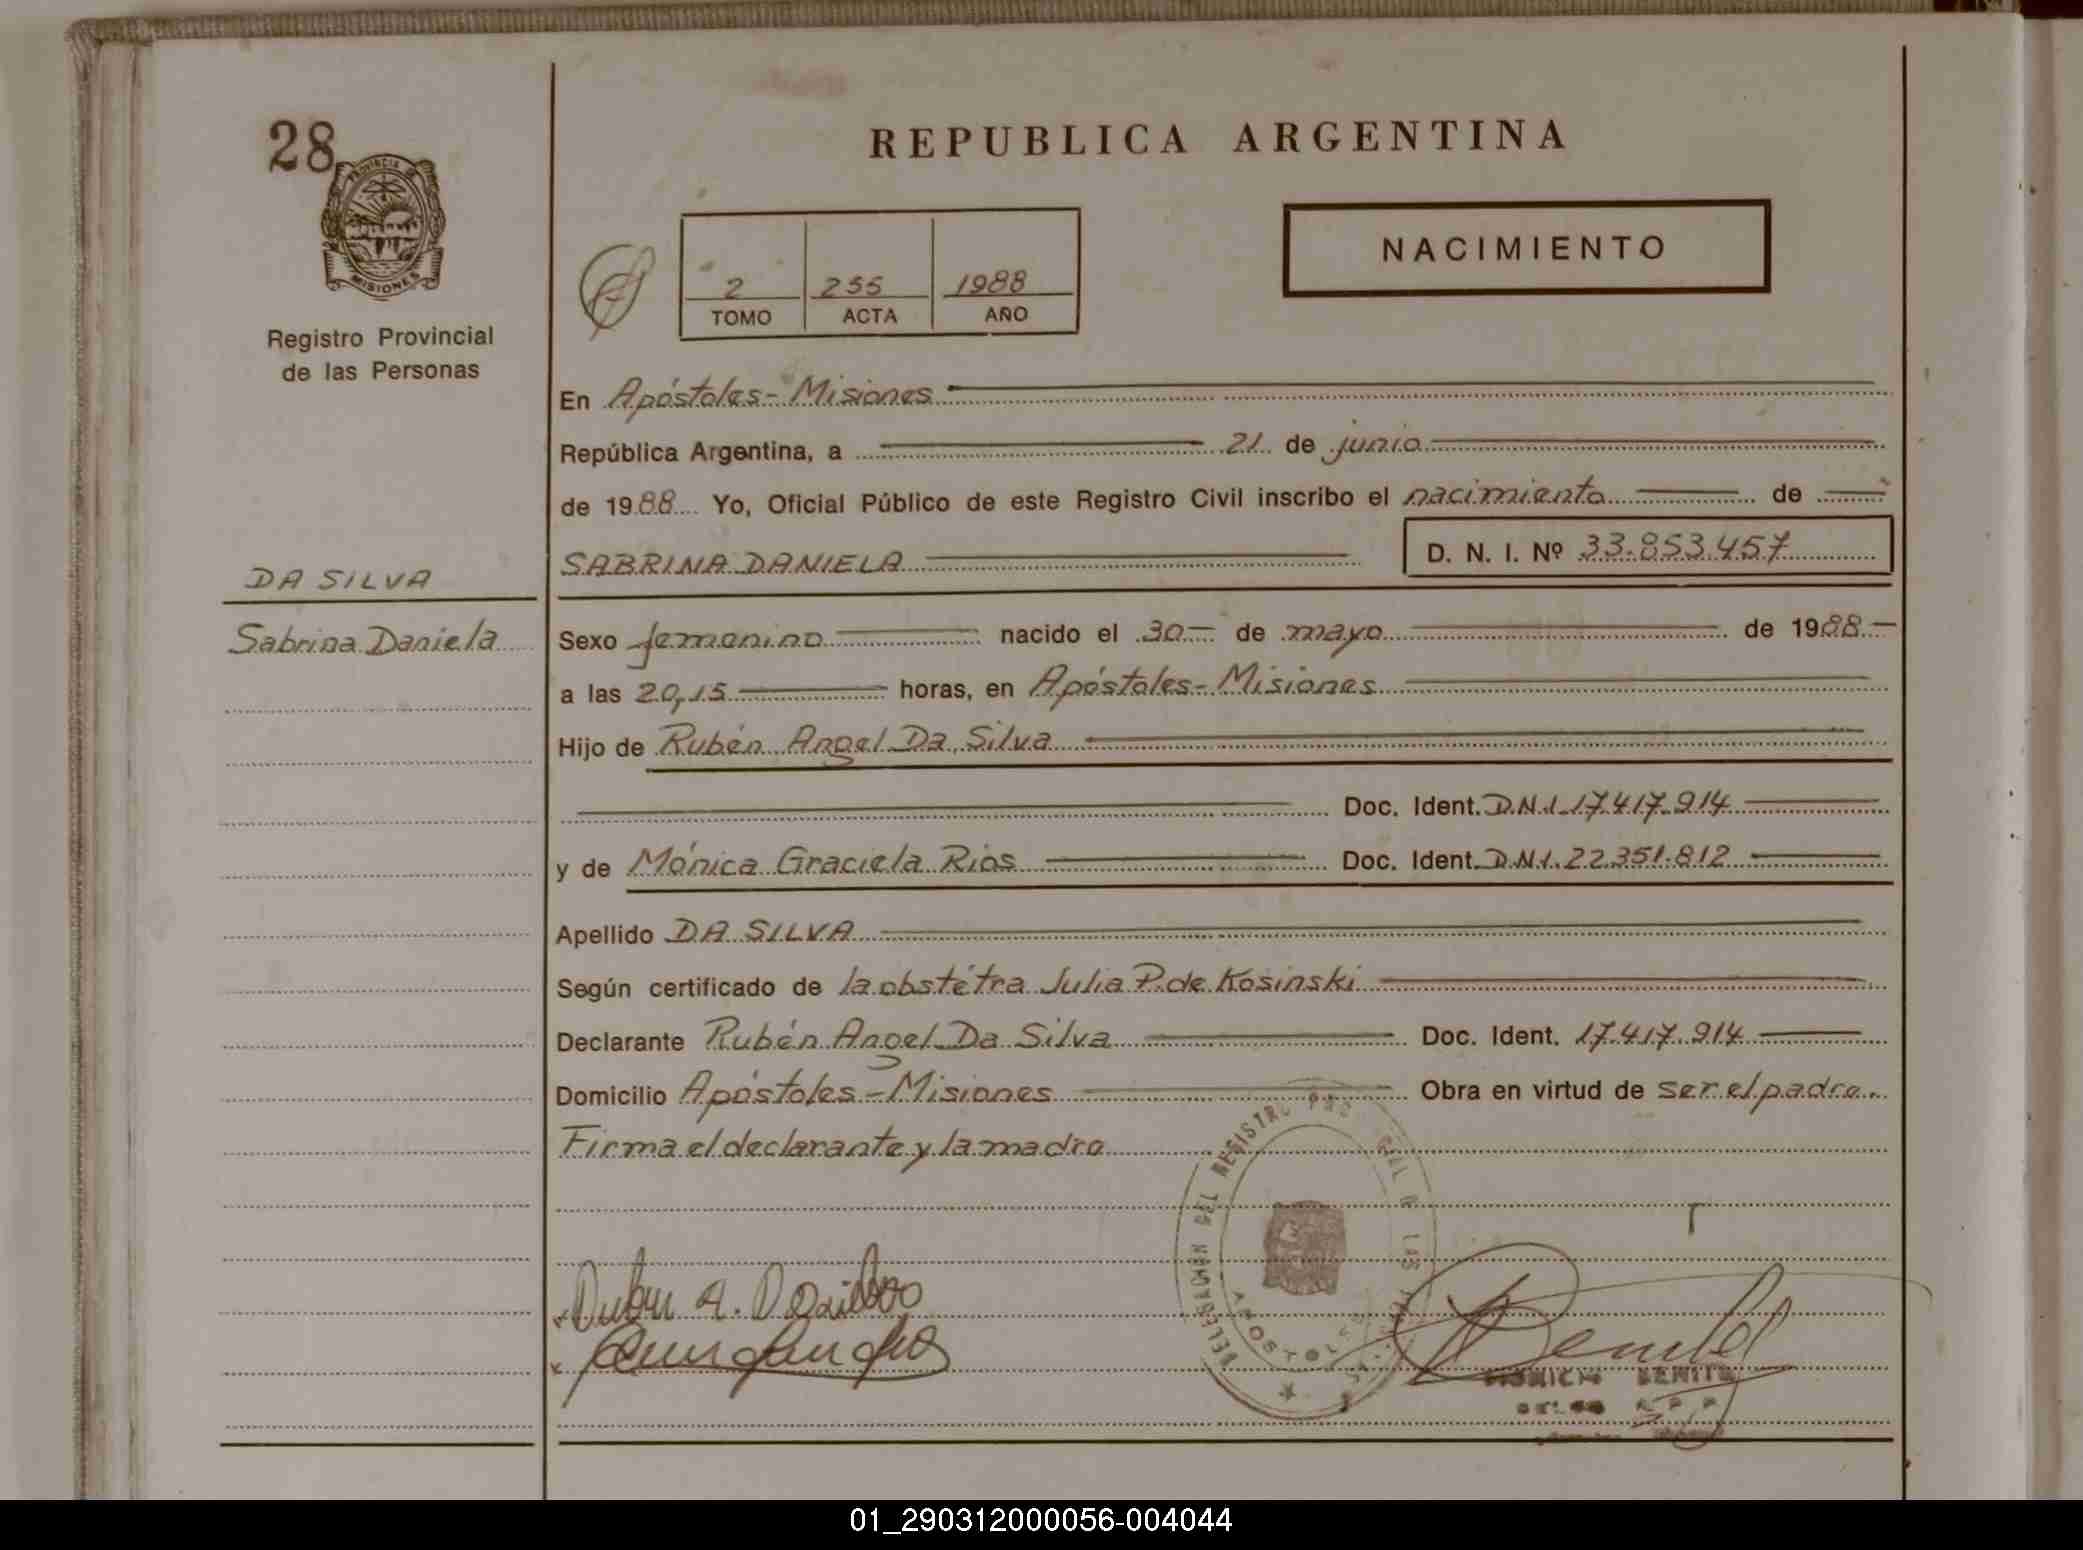 28
PROVINCIA DE
MISIONES
Registro Provincial
de las Personas
REPUBLICA ARGENTINA
NACIMIENTO
2 255 1988
TOMO ACTA AÑO
En Apóstoles - Misiones
República Argentina, a 21 de junio
de 1988 Yo, Oficial Público de este Registro Civil inscribo el nacimiento de
SABRINA DANIELA D. N. I. Nº 33.853.457
DA SILVA
Sabrina Daniela
Sexo femenino nacido el 30 de mayo de 1988
a las 20,15 horas, en Apóstoles - Misiones
Hijo de Rubén Angel Da Silva
Doc. Ident. D.N.I. 17.417.914
y de Mónica Graciela Rios Doc. Ident. D.N.I. 22.351.812
Apellido DA SILVA
Según certificado de la obstétra Julia P. de Kosinski
Declarante Rubén Angel Da Silva Doc. Ident. 17.417.914
Domicilio Apóstoles - Misiones Obra en virtud de ser el padre.
Firma el declarante y la madre
DELEGACION DEL REGISTRO
APOSTOLES
BENITO
01_290312000056-004044